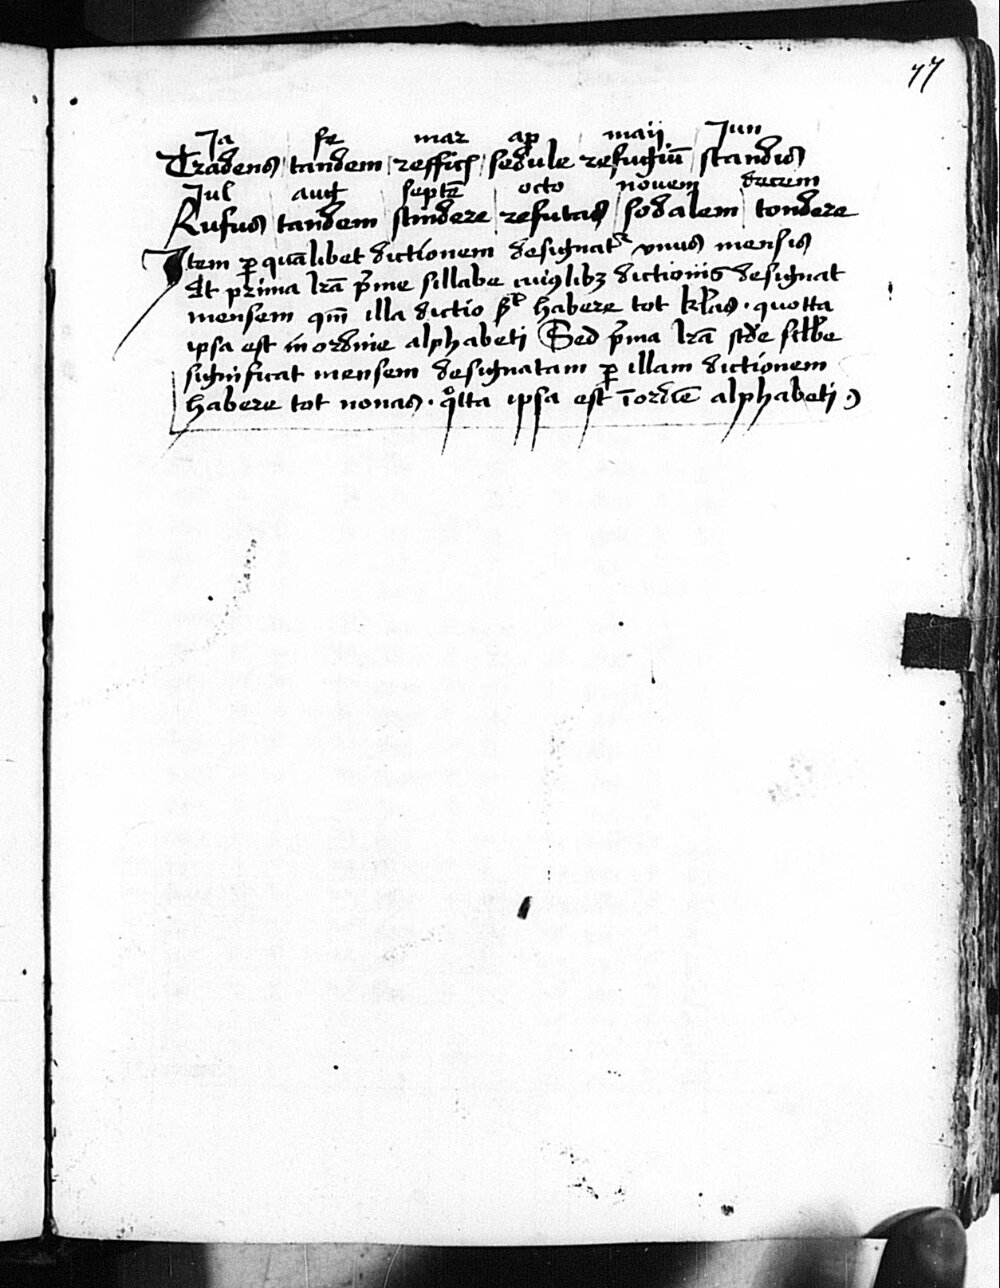 77
Ja fe mar ap maij Jun
Tradens tandem reffici sedule refugiū standis
Jul aug septē octo novem decem
Rufus tandem stindere refutas sodalem tondere
Item ꝑ quālibet dictionem designatᷣ vnus mensis
Et prima lrā p̄me sillabe cuiꝰlibꝫ dictionis designat
mensem qm̄ illa dictio habere tot kl̄as · quotta
ipsa est in ordine alphabeti Sed p̄ma lrā scd̄e sill̄be
significat mensem designatam ꝑ illam dictionem
habere tot nonas · qͦtta ipsa est ī ordīe alphabeti